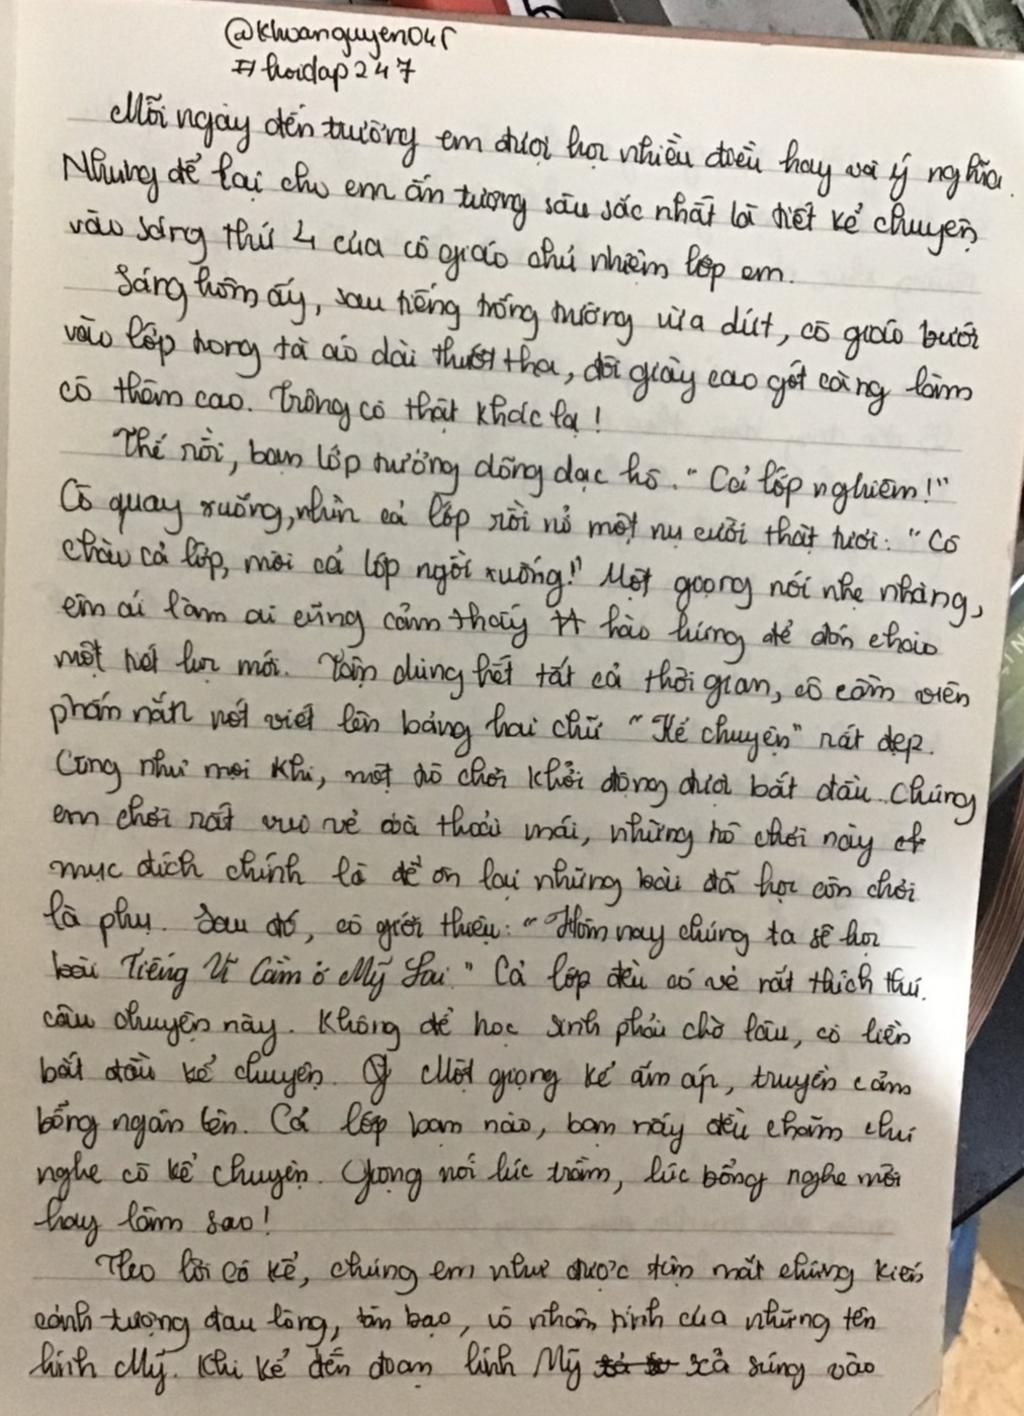 @khoanguyen045
#hoidap247
Mỗi ngày đến trường em được học nhiều điều hay và ý nghĩa.
Nhưng để lại cho em ấn tượng sâu sắc nhất là tiết kể chuyện
vào sáng thứ 4 của cô giáo chủ nhiệm lớp em.
Sáng hôm ấy, sau tiếng trống trường vừa dứt, cô giáo bước
vào lớp trong tà áo dài thướt tha, đôi giày cao gót càng làm
cô thêm cao. Trông cô thật khác lạ!
Thế rồi, bạn lớp trưởng dõng dạc hô. "Cả lớp nghiêm!"
Cô quay xuống, nhìn cả lớp rồi nở một nụ cười thật tươi: "Cô
chào cả lớp, mời cả lớp ngồi xuống!" Một giọng nói nhẹ nhàng,
êm ái làm ai cũng cảm thấy hào hứng để đón chào
một tiết học mới. Tận dụng hết tất cả thời gian, cô cầm viên
phấn nắn nót viết lên bảng hai chữ "Kể chuyện" rất đẹp.
Cũng như mọi khi, một trò chơi khởi động được bắt đầu. Chúng
em chơi rất vui vẻ và thoải mái, những trò chơi này
mục đích chính là để ôn lại những bài đã học còn chơi
là phụ. Sau đó, cô giới thiệu: "Hôm nay chúng ta sẽ học
bài Tiếng Vĩ Cầm ở Mỹ Lai." Cả lớp đều có vẻ rất thích thú
câu chuyện này. Không để học sinh phải chờ lâu, cô liền
bắt đầu kể chuyện. Một giọng kể ấm áp, truyền cảm
bỗng ngân lên. Cả lớp bạn nào, bạn nấy đều chăm chú
nghe cô kể chuyện. Giọng nói lúc trầm, lúc bổng nghe mới
hay làm sao!
Theo lời cô kể, chúng em như được tận mắt chứng kiến
cảnh tượng đau lòng, tàn bạo, vô nhân tính của những tên
lính Mỹ. Khi kể đến đoạn lính Mỹ xả súng vào